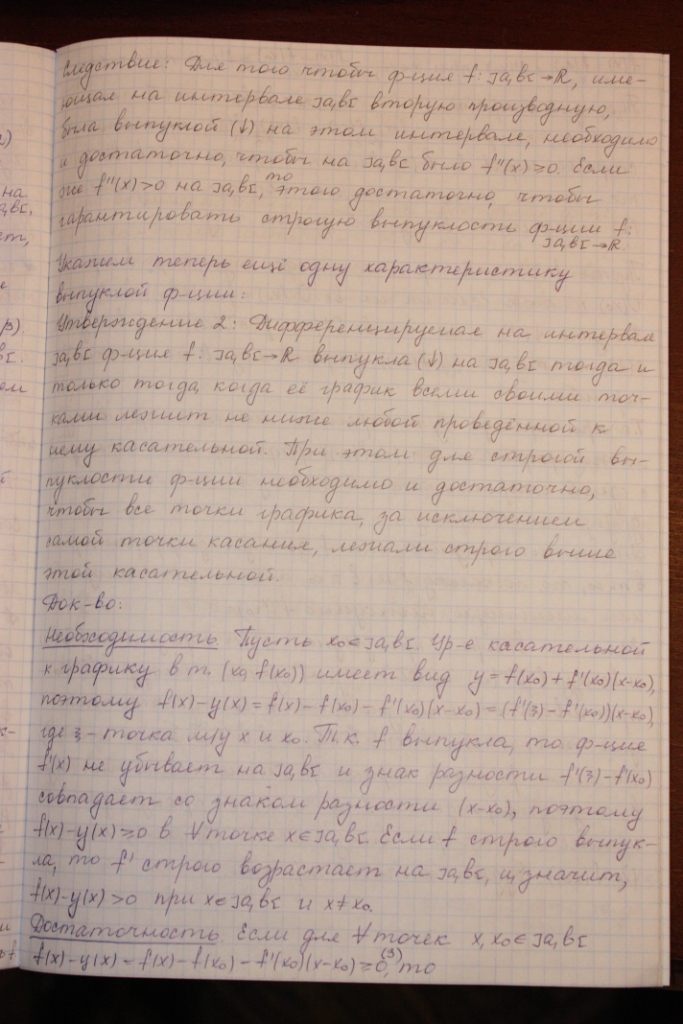 Следствие: Для того чтобы ф-ция f: ]a,b[→R, име-
ющая на интервале ]a,b[ вторую производную,
была выпуклой (↓) на этом интервале, необходимо
и достаточно, чтобы на ]a,b[ было f''(x)≥0. Если
же f''(x)>0 на ]a,b[, то этого достаточно, чтобы
гарантировать строгую выпуклость ф-ции f:
]a,b[→R
Укажем теперь ещё одну характеристику
выпуклой ф-ции:
Утверждение 2: Дифференцируемая на интервале
]a,b[ ф-ция f: ]a,b[→R выпукла (↓) на ]a,b[ тогда и
только тогда, когда её график всеми своими точ-
ками лежит не ниже любой проведённой к
нему касательной. При этом для строгой вы-
пуклости ф-ции необходимо и достаточно,
чтобы все точки графика, за исключением
самой точки касания, лежали строго выше
этой касательной.
Док-во:
Необходимость. Пусть x₀∈]a,b[. Ур-е касательной
к графику в т. (x₀, f(x₀)) имеет вид y=f(x₀)+f'(x₀)(x-x₀),
поэтому f(x)-y(x)=f(x)-f(x₀)-f'(x₀)(x-x₀)=(f'(ξ)-f'(x₀))(x-x₀),
где ξ - точка м/у x и x₀. Т.к. f выпукла, то ф-ция
f'(x) не убывает на ]a,b[ и знак разности f'(ξ)-f'(x₀)
совпадает со знаком разности (x-x₀), поэтому
f(x)-y(x)≥0 в ∀ точке x∈]a,b[. Если f строго выпук-
ла, то f' строго возрастает на ]a,b[, и, значит,
f(x)-y(x)>0 при x∈]a,b[ и x≠x₀.
Достаточность. Если для ∀ точек x, x₀∈]a,b[
f(x)-y(x)=f(x)-f(x₀)-f'(x₀)(x-x₀)≥0, (3) то